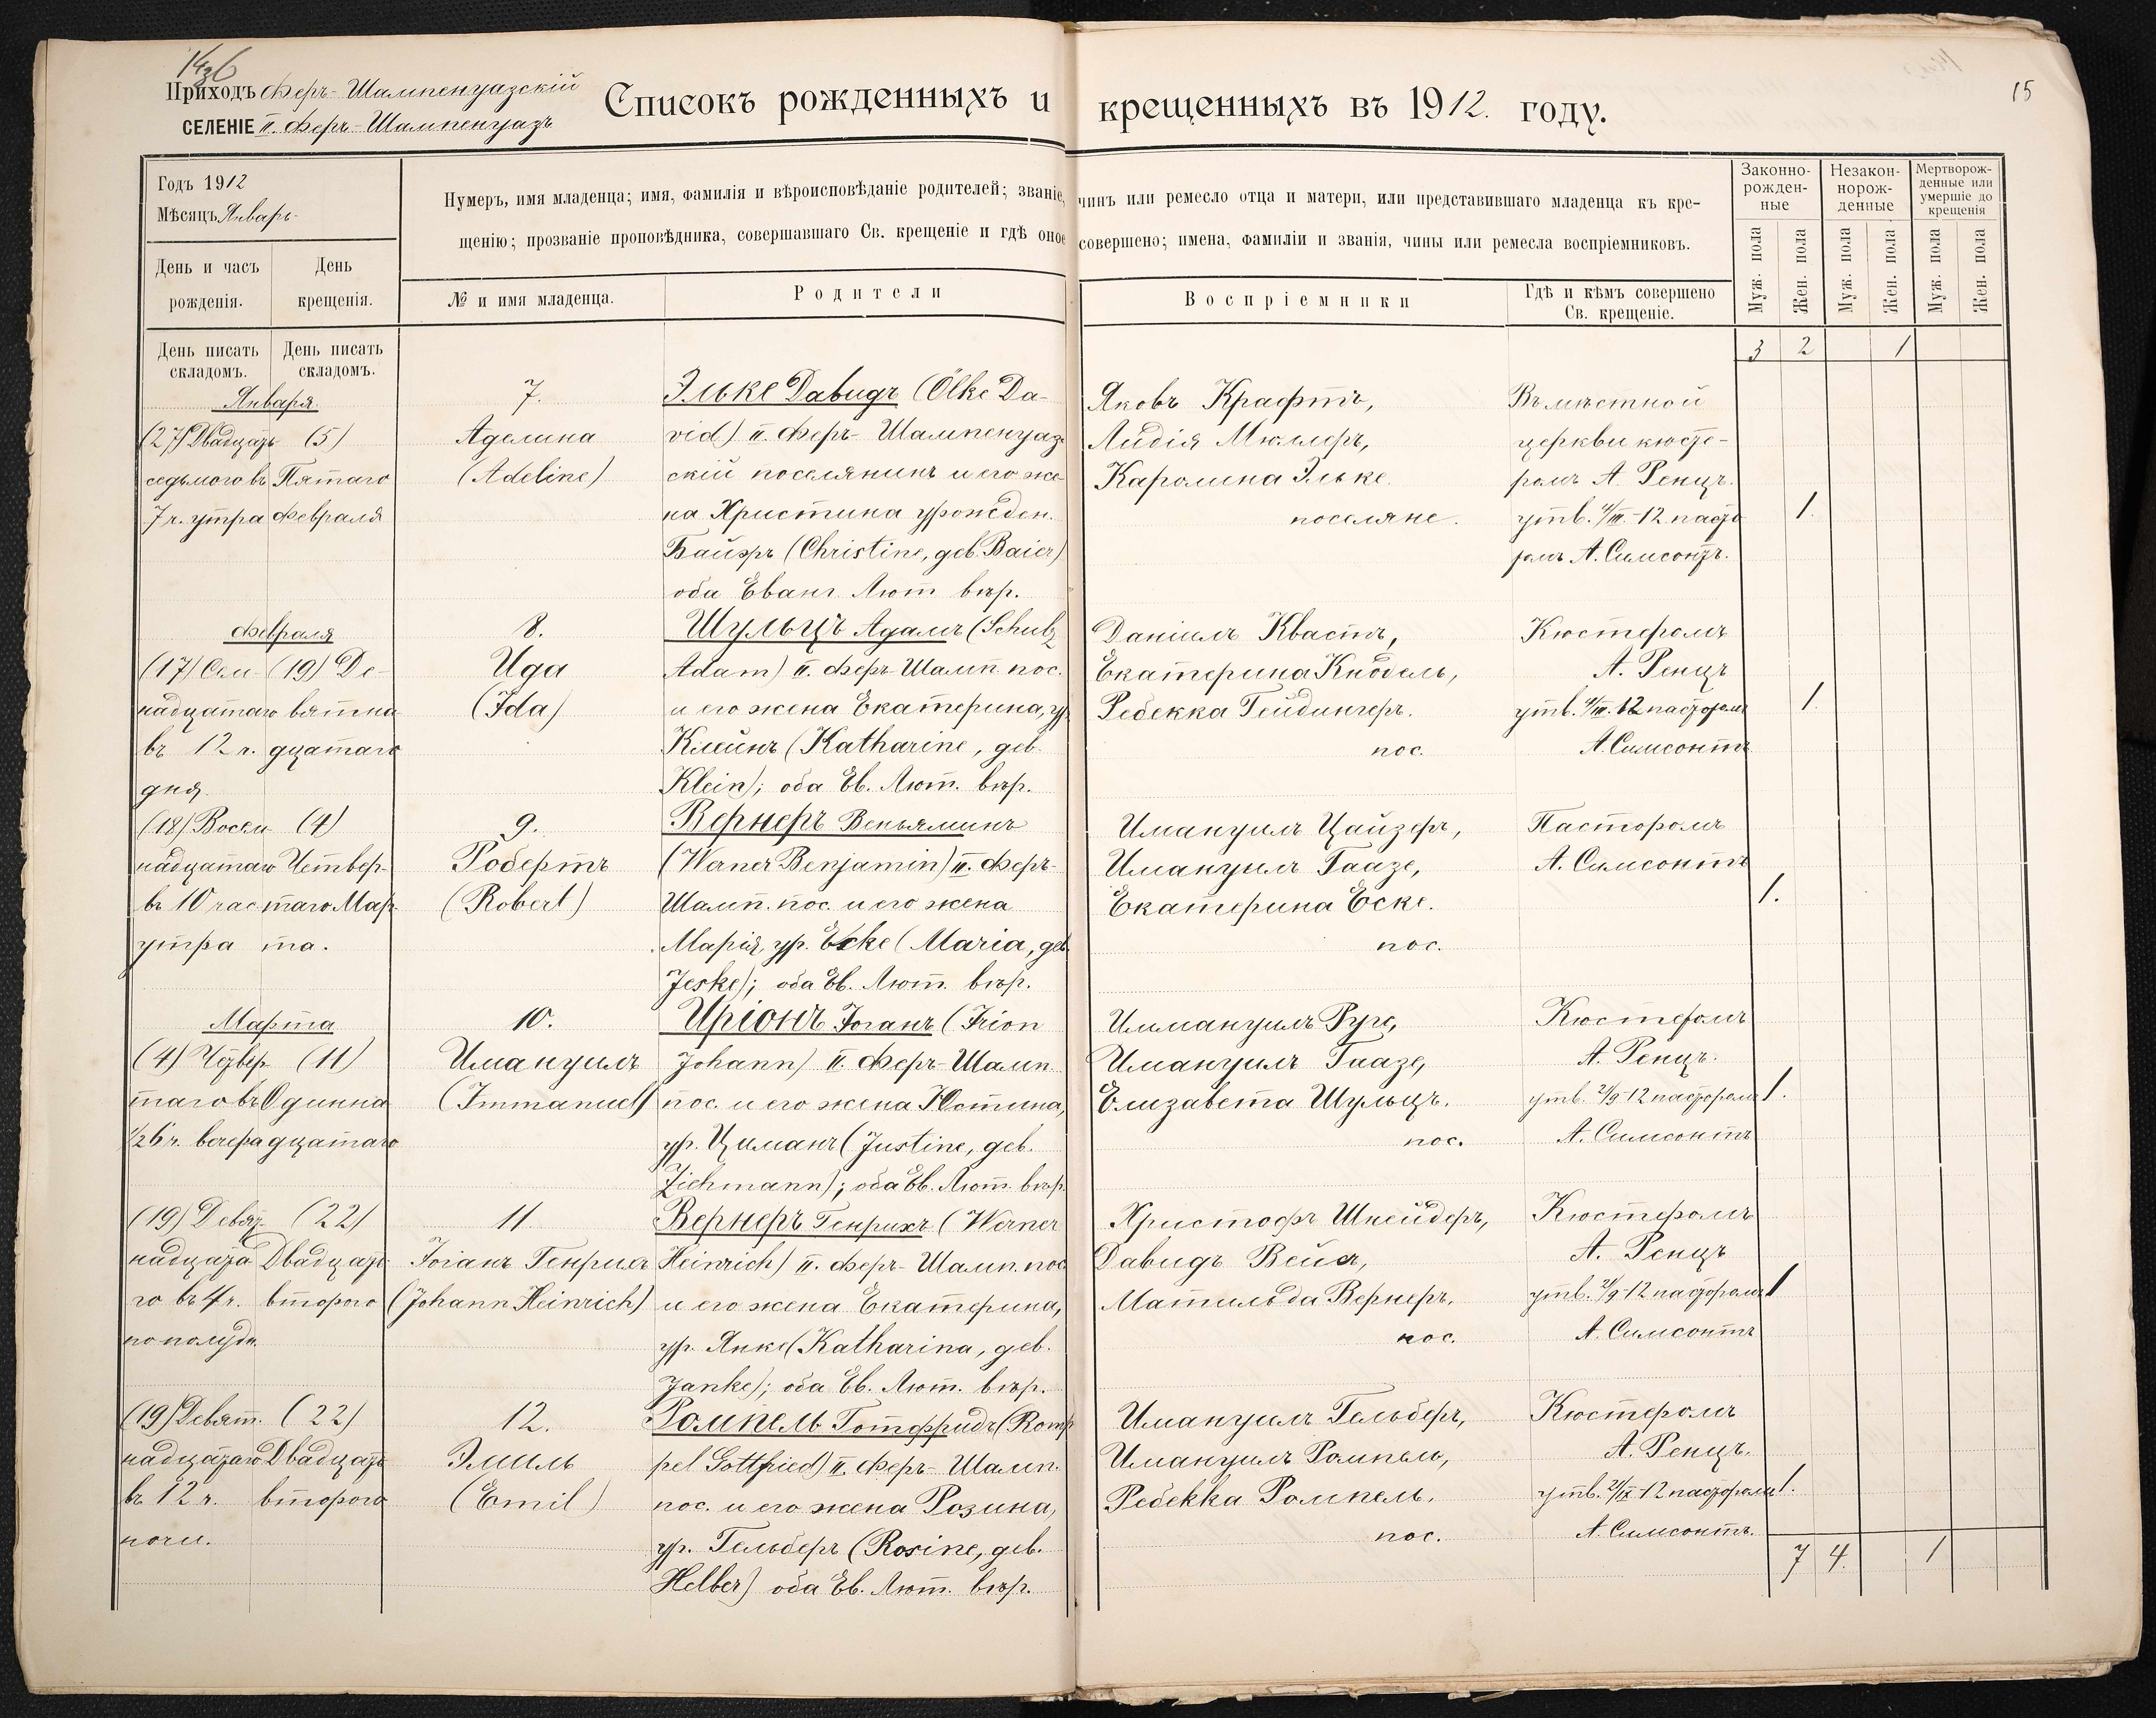 14 об
15
Приходъ Феръ-Шампенуазскій
СЕЛЕНІЕ II. Феръ-Шампенуазъ
Списокъ рожденныхъ и крещенныхъ въ 1912. году.
Годъ 1912
Мѣсяцъ Январь-
Нумеръ, имя младенца; имя, фамилія и вѣроисповѣданіе родителей; званіе, чинъ или ремесло отца и матери, или представившаго младенца къ кре-
щенію; прозваніе проповѣдника, совершавшаго Св. крещеніе и гдѣ оное совершено; имена, фамиліи и званія, чины или ремесла воспріемниковъ.
Законно-
рожден-
ные
Незакон-
норож-
денные
Мертворож-
денные или
умершіе до
крещенія
День и часъ
рожденія.
День
крещенія.
№ и имя младенца.
Родители
Воспріемники
Гдѣ и кѣмъ совершено
Св. крещеніе.
Муж. пола
Жен. пола
Муж. пола
Жен. пола
Муж. пола
Жен. пола
День писать
складомъ.
День писать
складомъ.
3 2 1
Января.
(27) Двадцать
седьмого въ
7 ч. утра
(5)
Пятаго
Февраля
7.
Аделина
(Adeline)
Эльке Давидъ (Ölke Da-
vid) II. Феръ-Шампенуаз-
скій поселянинъ и его же-
на Христина урожден.
Байэръ (Christine, geb. Baier)
оба Еванг. Лют. вѣр.
Яковъ Крафтъ,
Лидія Мюллеръ,
Каролина Эльке.
поселяне.
Въ мѣстной
церкви кюсте-
ромъ А. Ренцъ.
утв. 4/III.-12 пасто
ромъ А. Симсонтъ.
1.
Февраля
(17) Сем-
надцатаго
въ 12 ч.
дня.
(19) Де-
вятна
дцатаго
8.
Ида
(Ida)
Шульцъ Адамъ (Schulz
Adam) II. Феръ-Шамп. пос.
и его жена Екатерина, ур.
Клейнъ (Katharine, geb.
Klein); оба Ев. Лют. вѣр.
Даніилъ Квастъ,
Екатерина Кнодель,
Ребекка Гейдингеръ.
пос.
Кюстеромъ
А. Ренцъ
утв. 4/III.-12 пасторомъ
А. Симсонтъ
1.
(18) Восем
надцатаго
въ 10 час
утра
(4)
Четвер-
таго Мар
та.
9.
Робертъ
(Robert)
Вернеръ Веньяминъ
(Werner Benjamin) II. Феръ-
Шамп. пос. и его жена
Марія, ур. Еске (Maria, geb.
Jeske); оба Ев. Лют. вѣр.
Имануилъ Цайзеръ,
Имануилъ Гаазе,
Екатерина Еске.
пос.
Пасторомъ
А. Симсонтъ
1.
Марта
(4) Четвер
таго въ
1/2 6 ч. вечера
(11)
Одинна
дцатаго
10.
Имануилъ
(Immanuel)
Иріонъ Іоганъ (Irion
Johann) II. Феръ-Шамп.
пос. и его жена Юстина,
ур. Циманъ (Justine, geb.
Zichmann); оба Ев. Лют. вѣр.
Иммануилъ Руго,
Имануилъ Гаазе,
Елизавета Шульцъ.
пос.
Кюстеромъ
А. Ренцъ.
утв. 21/9-12 пасторомъ
А. Симсонтъ
1.
(19) Девят
надцата
го въ 4 ч.
пополудн.
(22)
Двадцать
второго
11
Іоганъ Генрихъ
(Johann Heinrich)
Вернеръ Генрихъ (Werner
Heinrich) II. Феръ-Шамп. пос
и его жена Екатерина,
ур. Янке (Katharina, geb.
Janke); оба Ев. Лют. вѣр.
Христофъ Шнейдеръ,
Давидъ Вейс,
Матильда Вернеръ.
пос.
Кюстеромъ
А. Ренцъ
утв. 21/9-12 пасторомъ
А. Симсонтъ
1
(19) Девят.
надцатаго
въ 12 ч.
ночи.
(22)
Двадцать
второго
12.
Эмиль
(Emil)
Ромпель Готфридъ (Rom
pel Gottfried) II. Феръ-Шамп.
пос. и его жена Розина,
ур. Гельберъ (Rosine, geb.
Helber) оба Ев. Лют. вѣр.
Имануилъ Гельберъ,
Имануилъ Ромпель,
Ребекка Ромпель.
пос.
Кюстеромъ
А. Ренцъ.
утв. 21/IX-12 пасторомъ
А. Симсонтъ.
1.
7 4. 1